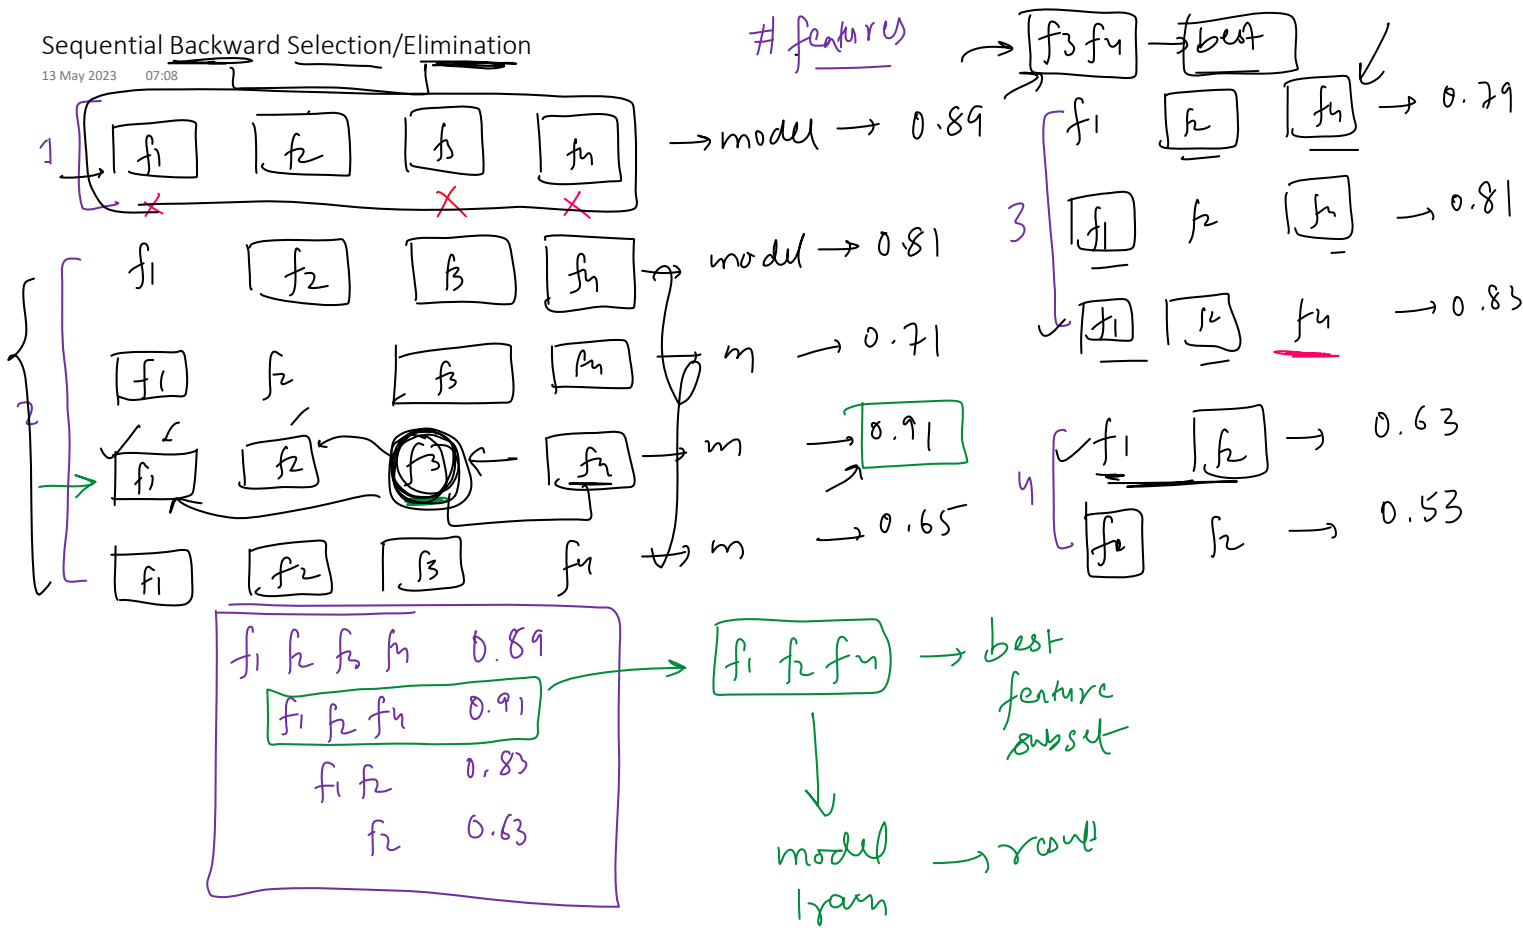 Sequential Backward Selection/Elimination
13 May 2023 07:08
# features
f3 f4 → best
1
f1 f2 f3 f4 → model → 0.89
x x x
2
f1 f2 f3 f4 → model → 0.81
f1 f2 f3 f4 → m → 0.71
f1 f2 f3 f4 → m → 0.91
f1 f2 f3 f4 → m → 0.65
3
f1 f2 f4 → 0.79
f1 f2 f4 → 0.81
f1 f2 f4 → 0.83
4
f1 f2 → 0.63
f2 → 0.53
f1 f2 f3 f4 0.89
f1 f2 f4 0.91
f1 f2 0.83
f2 0.63
f1 f2 f4 → best
feature
subset
model → result
train